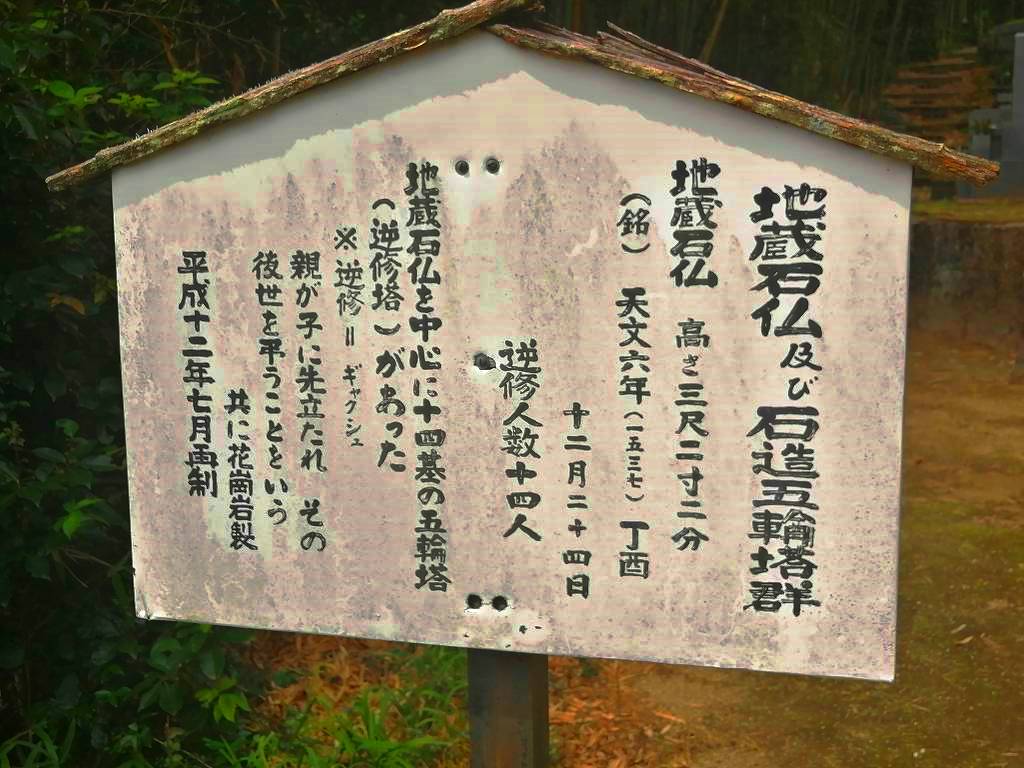 地蔵石仏及び石造五輪塔群
地蔵石仏 高さ三尺二寸二分
(銘) 天文六年(一五三七)丁酉
十二月二十四日
逆修人数十四人
地蔵石仏を中心に十四基の五輪塔
(逆修塔)があった
※逆修=ギャクシュ
親が子に先立たれ その
後世を弔うことをいう
共に花崗岩製
平成十二年七月再制